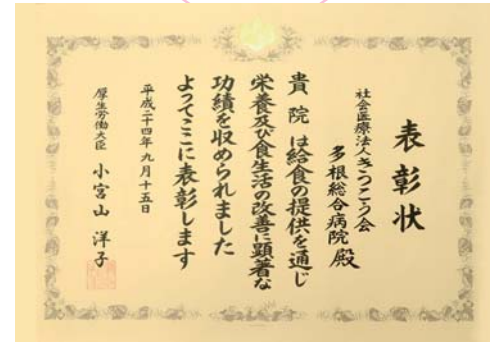 表彰状
社会医療法人きつこう会
多根総合病院 殿
貴院は給食の提供を通じ
栄養及び食生活の改善に顕著な
功績を収められました
よってここに表彰します
平成二十四年九月十五日
厚生労働大臣 小宮山 洋子